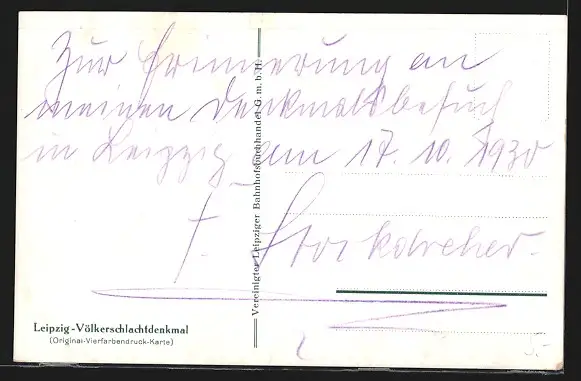 Zur Erinnerung an
meinen Denkmalsbesuch
in Leipzig am 17. 10. 1930
Vereinigter Leipziger Bahnhofsbuchhandel G.m.b.H.
Leipzig-Völkerschlachtdenkmal
(Original-Vierfarbendruck-Karte)
5.-